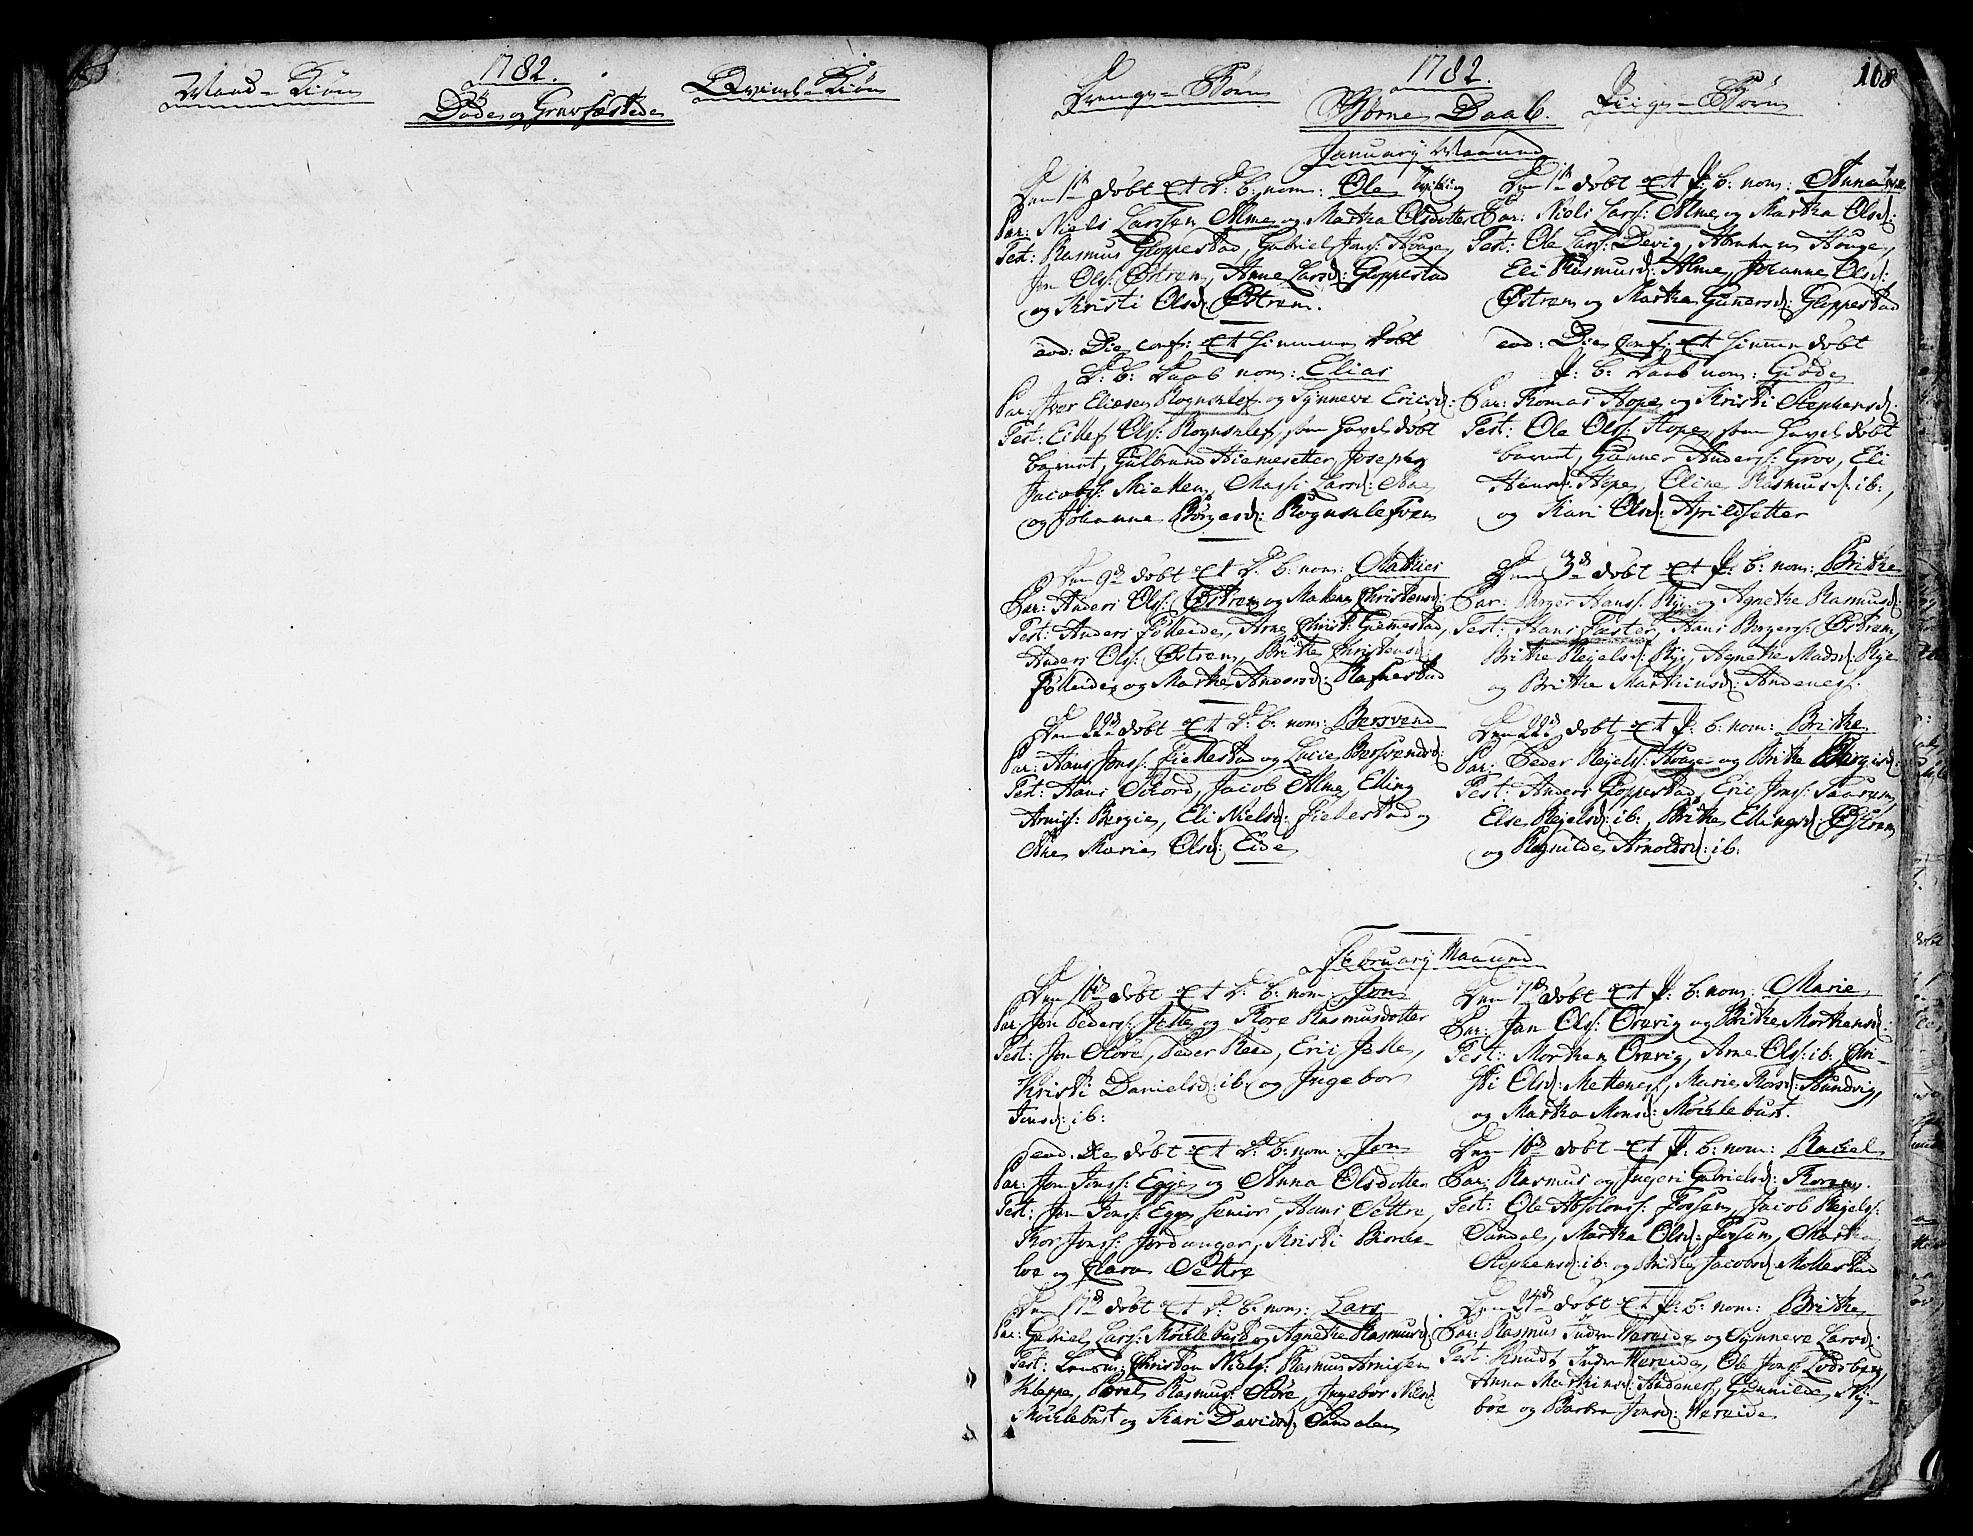 1782.
Mand-Kiøn
Døde og Gravfæstede
Qvinde-Kiøn
1782.
108
Drenge-Børn
Børne Daab.
Piige-Børn
January Maaned
Den 1ste døbt et D: b: nom: Ole Tvilling
Par: Niels Larssen Alme og Martha Olsdotter
Test: Rasmus Gloppestad, Gabriel Jons: Houge,
Jon Ols: Østrem, Anne Larsd: Gloppestad
og Kristi Olsd: Østrem.
eod: Die conf: et hiemme døbt
D: b: Daab nom: Elias
Par: Iver Eliesen Rognsklef og Synneve Ericsd:
Test: Ellef Ols: Rognsklef, som havde døbt
barnet, Gulbrand Hiemesetter, Joseph
Jacobs: Massi Larsd: Ane
og Johanne Børgesd: Rognsklefven
Den 9de døbt et D: b: nom: Mathies
Par: Anders Ols: Østrem og Malene Christensd:
Test: Anders Folleide, Arne Christ: Giemestad,
Anders Ols: Østrem, Brithe Christensd:
Folleide og Marthe Andersd: Rafnestad
Den 22de døbt et D: b: nom: Bersvend
Par: Hans Jons: Fickestad og Lucie Bersvendsd:
Test: Hans Schord, Jacob Alme, Elling
Arnis: Bergie, Eli Nielsd: Fickestad og
Ane Marie Olsd: Eide
Den 1ste døbt et P: b: nom: Anna
Par: Niels Lars: Alme og Martha Olsd:
Test: Ole Lars: Devig, Abraham Houge,
Eli Rasmusd: Alme, Johanne Olsd:
Østrem og Martha Gunersd: Gloppestad
eod: Die conf: et hiemme døbt
P: b: Daab nom: Giøde
Par: Thomas Hope og Kristi Stephensd:
Test: Ole Ols: Hope, som havde døbt
barnet, Gunner Anders: Grov, Eli
Hansd: Hope, Eline Rasmusd: ib:,
og Kari Olsd: Aprildsetter
Den 3de døbt et P: b: nom: Brithe
Par: Børger Hans: Rye og Agnethe Rasmusd:
Test: Hans Fæster, Hans Børgers: Østrem,
Brithe Rejelsd: Rye, Agnethe Madsd: Rye
og Brithe Mathiesd: Andenes:
Den 22de døbt et P: b: nom: Brithe
Par: Peder Rejels: Houge og Brithe
Test: Anders Gloppestad, Eric Jons: Saarum,
Else Rejelsd: ib:, Brithe Ellingsd: Østrem
og Rognilde Arnoldsd: ib:
February Maaned
Den 16de døbt et D: b: nom: Jon
Par: Jon Peders: Jelle og Thore Rasmusdotter
Test: Jon Støre, Peder Reed, Eric Jelle,
Kristi Danielsd: ib: og Ingebor
Jonsd: ib:
eod: Die døbt et D: b: nom: Jon
Par: Jon Jons: Egge og Anna Olsdotter
Test: Jon Jons: Egge senior, Hans Settre,
Thor Jons: Jordanger, Kristi Biorke-
loe og Clara Settre
Den 17de døbt et D: b: nom: Lars
Par: Gabriel Lars: Møcklebust og Agnethe Rasmusd:
Test: Christen Niels: Rasmus Arnisen
Kleppe, Povel Rasmus: Støre, Ingebor Nilsd:
Møcklebust og Kari Davidsd: Sandalen
Den 7de døbt et P: b: nom: Marie
Par: Jan Ols: Orevig og Brithe Morthensd:
Test: Morthen Orevig, Arne Ols: ib: Kri-
sti Olsd: Mettenes:, Marie Thorsd: Hundvig,
og Martha Monsd: Møcklebust.
Den 16de døbt et P: b: nom: Rachel
Par: Rasmus og Ingeri Gabrielsd: Thorem.
Test: Ole Absolons: Fossem, Jacob Rejels:
Sandal, Martha Olsd: Fossum, Martha
Stephensd: ib: og Brithe Jacobsd: Mollestad
Den 24de døbt et P: b: nom: Brithe
Par: Rasmus Indre Hereide og Synneve Larsd:
Test: Knud Indre Hereide, Ole Jons: Lodsboe,
Anna Mathiesd: Andenes:, Gunnilde My-
boe og Barbra Jonsd: Hereide